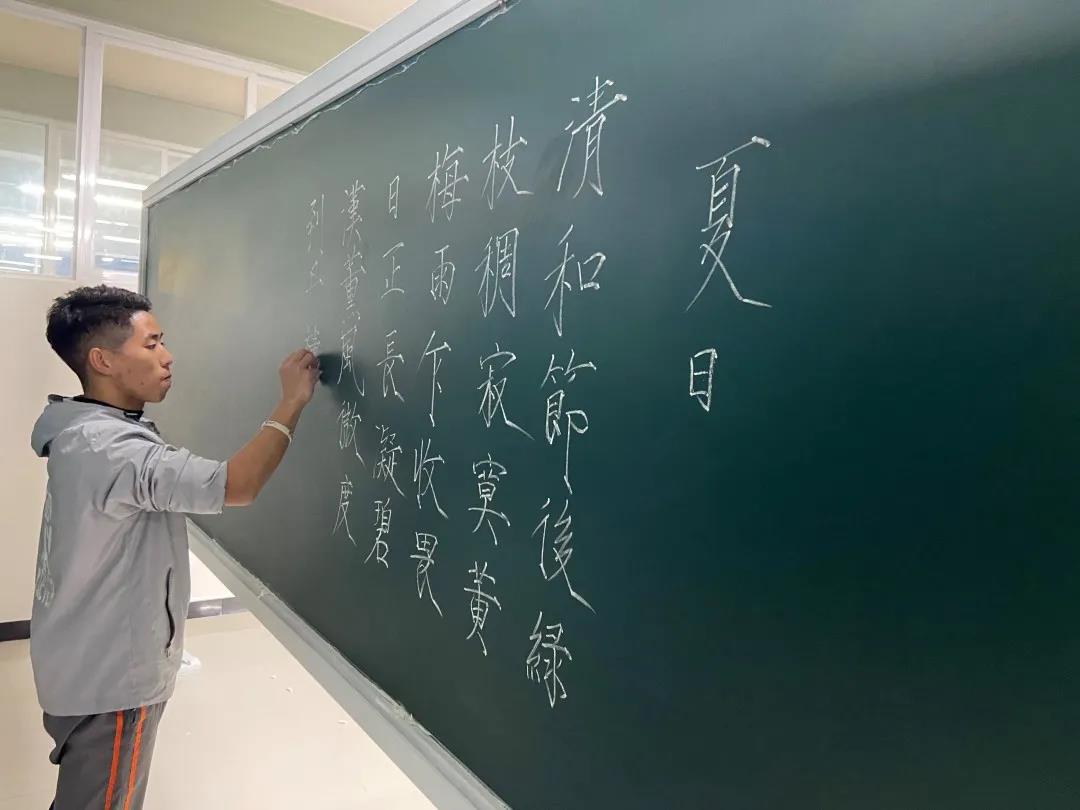 夏日
清和節後綠
枝稠寂寞黃
梅雨乍收畏
日正長凝碧
漢薰風微度